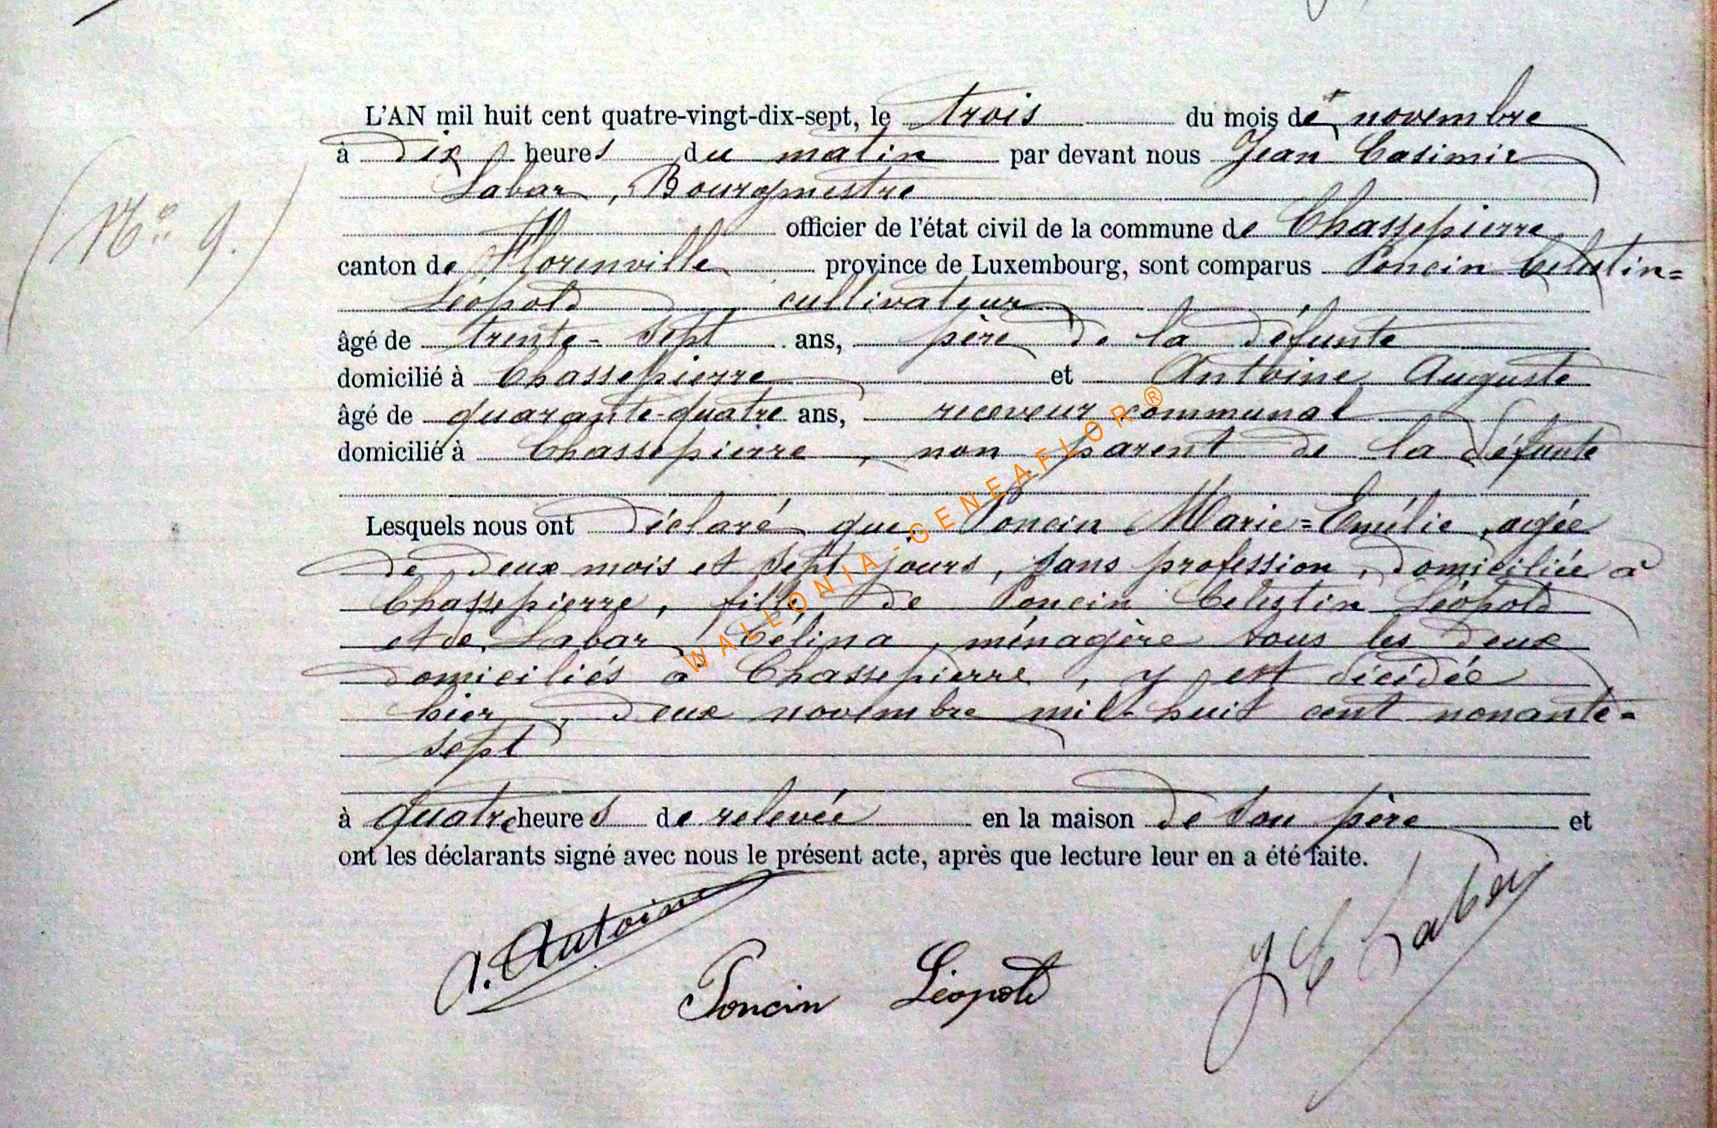 L'AN mil huit cent quatre-vingt-dix-sept, le trois du mois de novembre
à dix heures du matin par devant nous Jean Casimir
Labar, Bourgmestre
(No 9.)
officier de l'état civil de la commune de Chassepierre
canton de Florenville province de Luxembourg, sont comparus Poncin Celestin=
Léopold cultivateur
âgé de trente-sept ans, père de la défunte
domicilié à Chassepierre et Antoine Auguste
âgé de quarante-quatre ans, receveur communal
domicilié à Chassepierre, non parent de la défunte
Lesquels nous ont déclaré que Poncin Marie=Emélie, agée
de deux mois et sept jours, sans profession, domiciliée à
Chassepierre, fille de Poncin Celestin Léopold
et de Labar Célina, ménagère tous les deux
domiciliés à Chassepierre, y est décédée
hier, deux novembre mil-huit cent nonante=
sept
à quatre heures de relevée en la maison de son père et
ont les déclarants signé avec nous le présent acte, après que lecture leur en a été faite.
A. Antoine
Poncin Léopold
J C Labar
WALLONIA-GENEAFLOR®